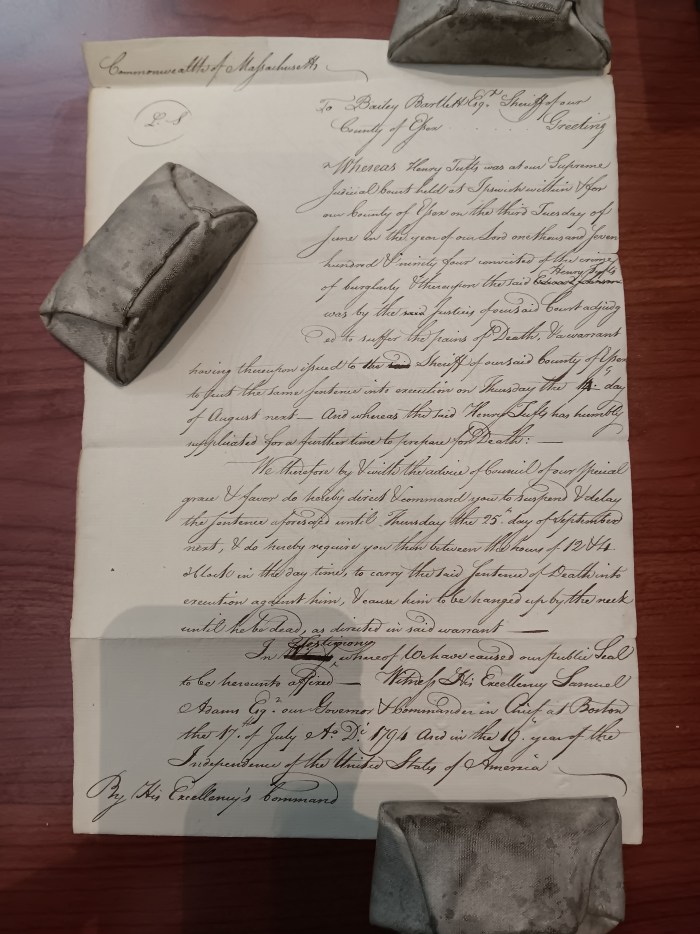 Commonwealth of Massachusetts
L. S
To Bailey Bartlett Esqr. Sheriff of our
County of Essex Greeting
Whereas Henry Tufts was at our Supreme
Judicial Court held at Ipswich within & for
our County of Essex on the third Tuesday of
June in the year of our Lord one thousand seven
hundred & ninety four convicted of the crime
Henry Tufts
of burglarly & thereupon the said
was by the said Justices of our said Court adjudg
ed to suffer the pains of Death, & a warrant
having thereupon issued to the Sheriff of our said County of Essex
to put the same sentence into execution on Thursday the 14 day
of August next — And whereas the said Henry Tufts has humbly
supplicated for a further time to prepare for Death: —
We therefore by & with the advice of Council of our special
grace & favor do hereby direct & command you to suspend & delay
the sentence aforesaid until Thursday the 25th day of September
next, & do hereby require you then between the hours of 12 & 4
oClock in the day time, to carry the said sentence of Death into
execution against him, & cause him to be hanged up by the neck
until he be dead, as directed in said warrant —
Testimony
In whereof, We have caused our public Seal
to be hereunto affixed — Witness His Excellency Samuel
Adams Esqr. our Governor & Commander in Chief at Boston
the 17th of July Ao. Di. 1794 And in the 19th year of the
Independence of the United States of America
By His Excellency's Command